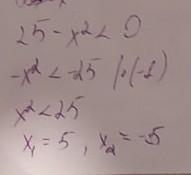 25 - x² < 0
-x² < -25 /·(-1)
x² < 25
x₁ = 5, x₂ = -5